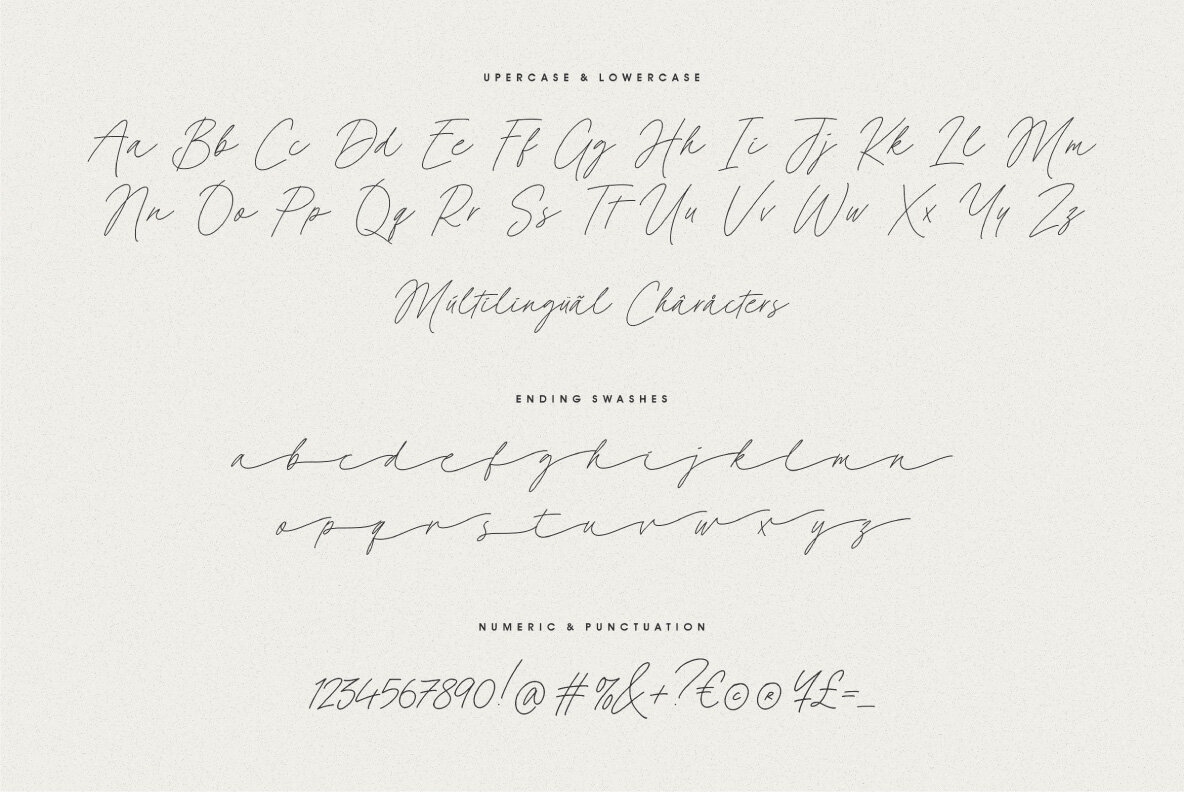 UPERCASE & LOWERCASE
Aa Bb Cc Dd Ee Ff Gg Hh Ii Jj Kk Ll Mm
Nn Oo Pp Qq Rr Ss Tt Uu Vv Ww Xx Yy Zz
Múltilingüãl Châråcters
ENDING SWASHES
a b c d e f g h i j k l m n
o p q r s t u v w x y z
NUMERIC & PUNCTUATION
1234567890!@#%&+?€©®¥£=_